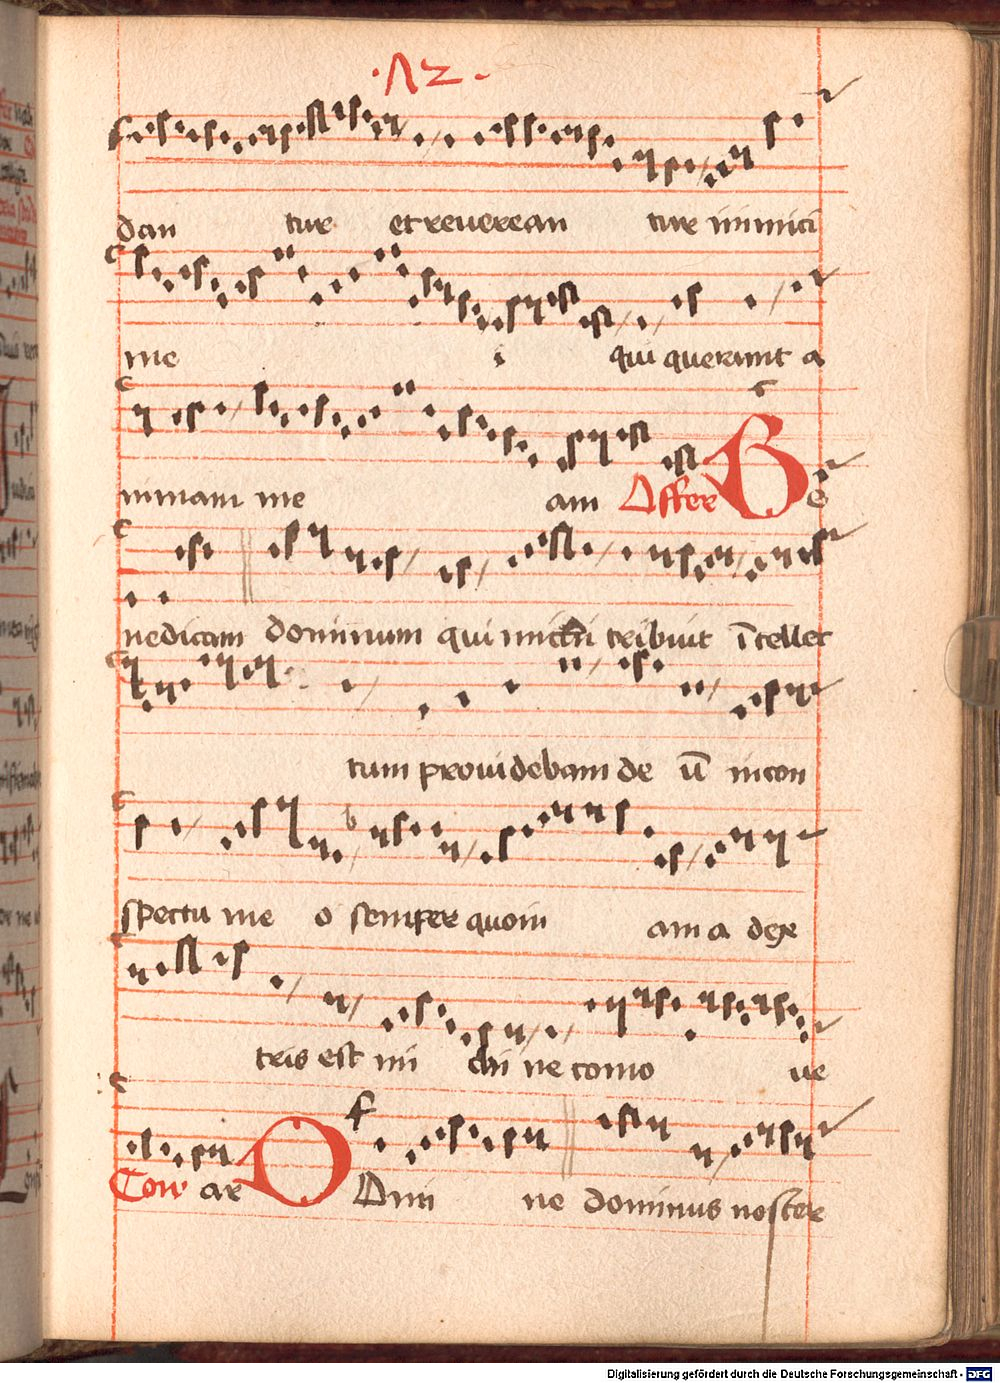 ·12·
dan tur et reverean tur inimici
me i qui querunt a
nimam me am Offer B e
nedicam dominum qui michi tribuit ītellec
tum providebam de ū incon
spectu me o semper quoni am a dex
tris est mi chi ne como ve
Com ar D Omi ne dominus noster
Digitalisierung gefördert durch die Deutsche Forschungsgemeinschaft - DFG